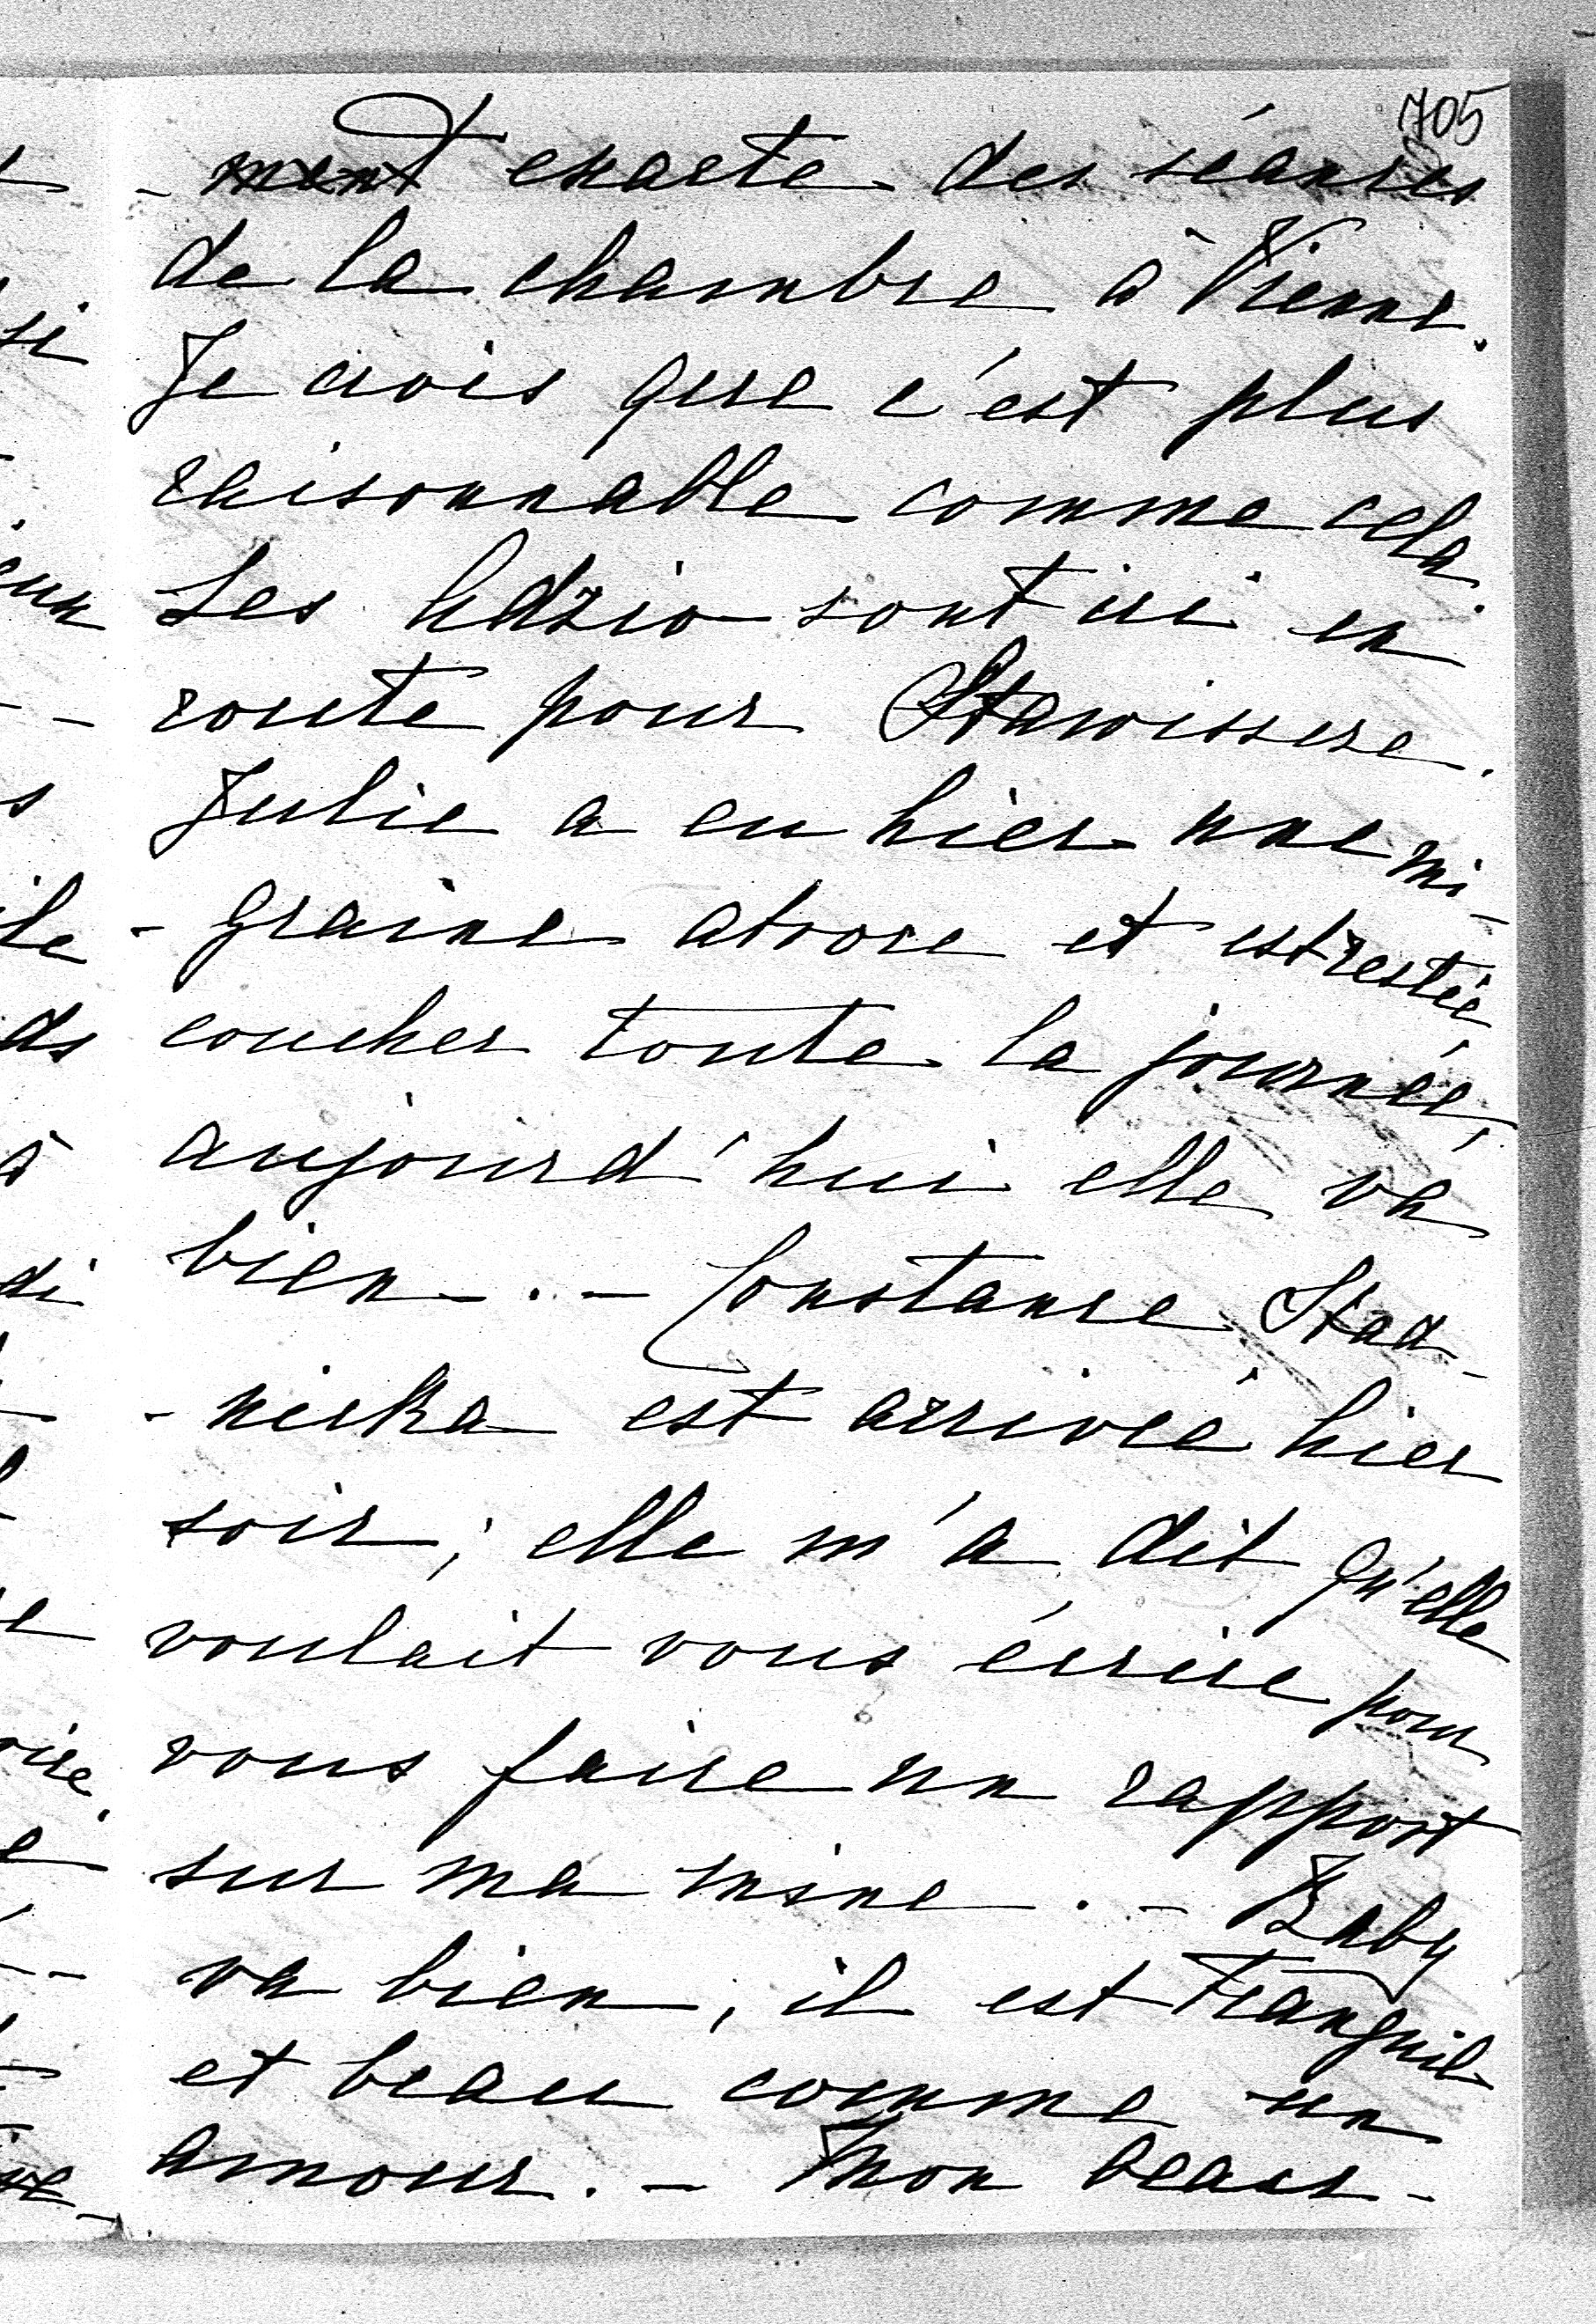 705
- ment exacte des séances
de la chambre à Vienne.
Je crois que c'est plus
raisonnable comme cela.
Les Adzio sont ici en
route pour
Julie a eu hier une mi-
- graine atroce et est restée
coucher toute la journée,
aujourd'hui elle va
bien. - Constance Stad-
- nicka est arrivée hier
soir; elle m'a dit qu'elle
voulait vous écrire pour
vous faire un rapport
sur ma mine. - Baby
va bien, il est tranquil
et beau comme un
amour. - Mon beau-